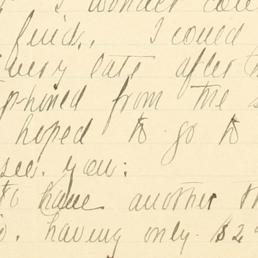 I wonder
quick. I could
very late after
phoned from the s
hoped to go to
see. you.
to have another
having only $2